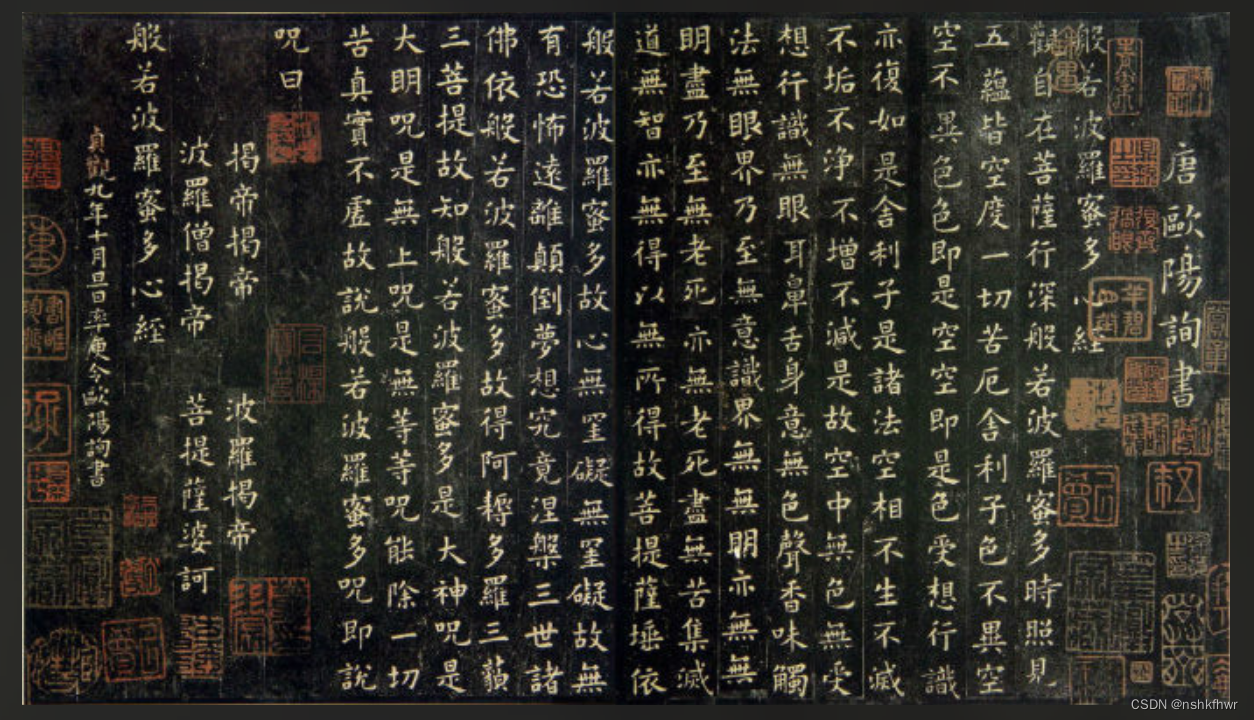 唐歐陽詢書
般若波羅蜜多心經
觀自在菩薩行深般若波羅蜜多時照見
五蘊皆空度一切苦厄舍利子色不異空
空不異色色即是空空即是色受想行識
亦復如是舍利子是諸法空相不生不滅
不垢不淨不增不減是故空中無色無受
想行識無眼耳鼻舌身意無色聲香味觸
法無眼界乃至無意識界無無明亦無無
明盡乃至無老死亦無老死盡無苦集滅
道無智亦無得以無所得故菩提薩埵依
般若波羅蜜多故心無罣礙無罣礙故無
有恐怖遠離顛倒夢想究竟涅槃三世諸
佛依般若波羅蜜多故得阿耨多羅三藐
三菩提故知般若波羅蜜多是大神呪是
大明呪是無上呪是無等等呪能除一切
苦真實不虛故說般若波羅蜜多呪即說
呪曰
揭帝揭帝 波羅揭帝
波羅僧揭帝 菩提薩婆訶
般若波羅蜜多心經
貞觀九年十月旦日率更令歐陽詢書
CSDN @nshkfhwr